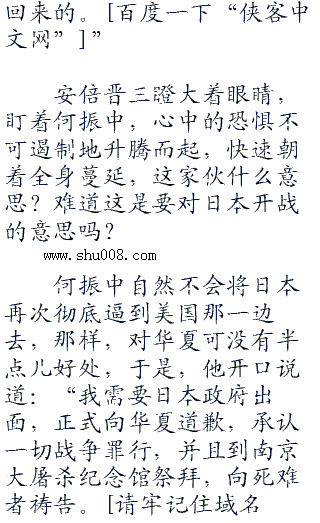 回来的。[百度一下“侠客中
文网”]”
安倍晋三瞪大着眼睛，
盯着何振中，心中的恐惧不
可遏制地升腾而起，快速朝
着全身蔓延，这家伙什么意
思？难道这是要对日本开战
的意思吗？
www.shu008.com
何振中自然不会将日本
再次彻底逼到美国那一边
去，那样，对华夏可没有半
点儿好处，于是，他开口说
道：“我需要日本政府出
面，正式向华夏道歉，承认
一切战争罪行，并且到南京
大屠杀纪念馆祭拜，向死难
者祷告。[请牢记住域名